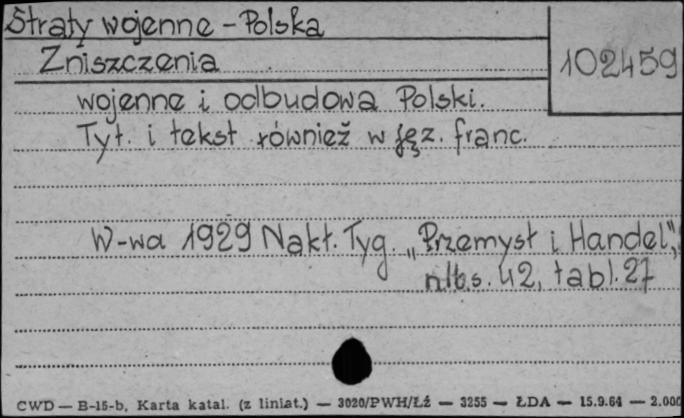 Straty wojenne - Polska
Zniszczenia
102459
wojenne i odbudowa Polski.
Tyt. i tekst również w jęz. franc.
W-wa 1929 Nakł. Tyg. „Przemysł i Handel",
nlb s. 42, tabl. 27
CWD — B-15-b, Karta katal. (z liniat.) — 3020/PWH/Łż — 3255 — ŁDA — 15.9.64 — 2.000